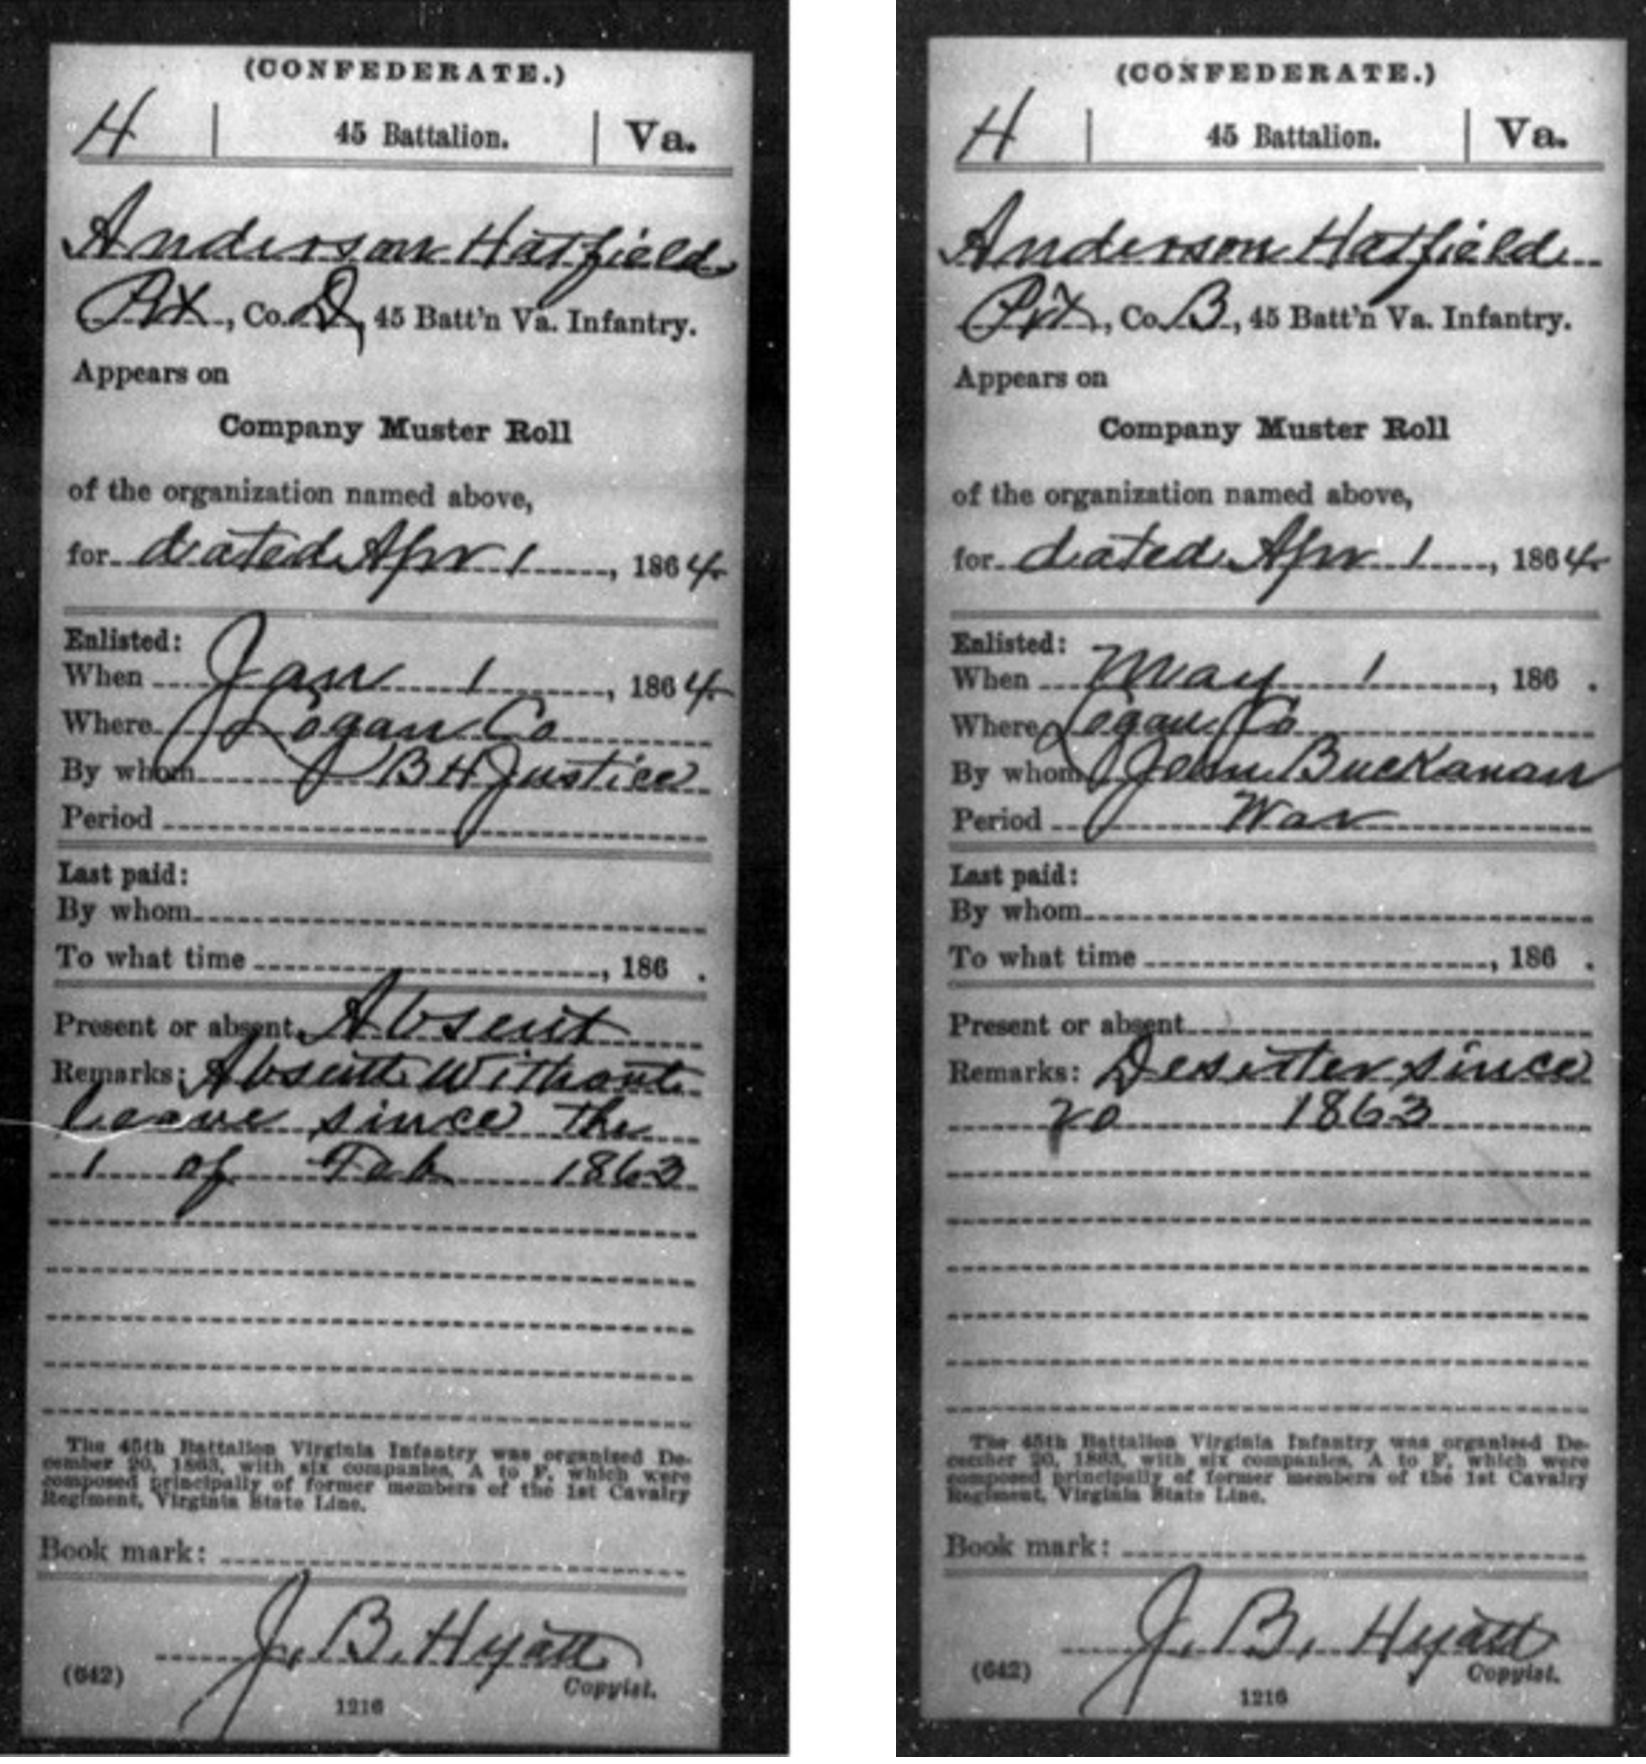 (CONFEDERATE.)
H | 45 Battalion. | Va.
Anderson Hatfield
Pvt, Co. D, 45 Batt'n Va. Infantry.
Appears on
Company Muster Roll
of the organization named above,
for dated Apr 1, 1864.
Enlisted:
When Jan 1, 1864.
Where Logan Co
By whom B H Justice
Period
Last paid:
By whom
To what time, 186 .
Present or absent Absent
Remarks: Absent Without
leave since the
1 of Feb 1863
The 45th Battalion Virginia Infantry was organized De-
cember 20, 1863, with six companies, A to F, which were
composed principally of former members of the 1st Cavalry
Regiment, Virginia State Line.
Book mark:
J. B. Hyatt
(642) Copyist.
1216
(CONFEDERATE.)
H | 45 Battalion. | Va.
Anderson Hatfield
Pvt, Co. B, 45 Batt'n Va. Infantry.
Appears on
Company Muster Roll
of the organization named above,
for dated Apr 1, 1864.
Enlisted:
When May 1, 186 .
Where Logan Co
By whom John Buckanan
Period War
Last paid:
By whom
To what time, 186 .
Present or absent
Remarks: Deserter since
20 1863
The 45th Battalion Virginia Infantry was organized De-
cember 20, 1863, with six companies, A to F, which were
composed principally of former members of the 1st Cavalry
Regiment, Virginia State Line.
Book mark:
J. B. Hyatt
(642) Copyist.
1216